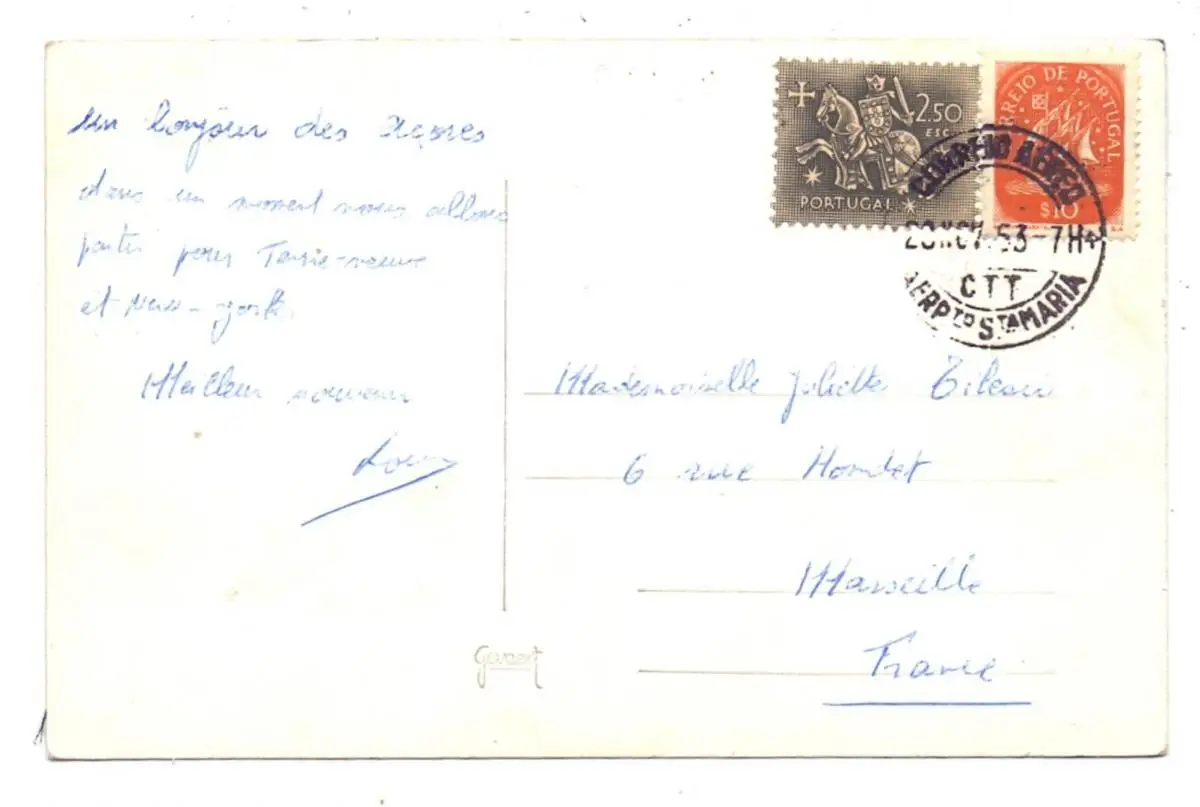 un bonjour des açores
dans un moment nous allons
partir pour Terre-neuve
et New-york.
Meilleur souvenir
2.50
ESC.
PORTUGAL
CORREIO DE PORTUGAL
$10
CORREIO AÉREO
53-7H
CTT
AERPTO STA MARIA
Mademoiselle Juliette
6 rue
Marseille
France
Gevaert